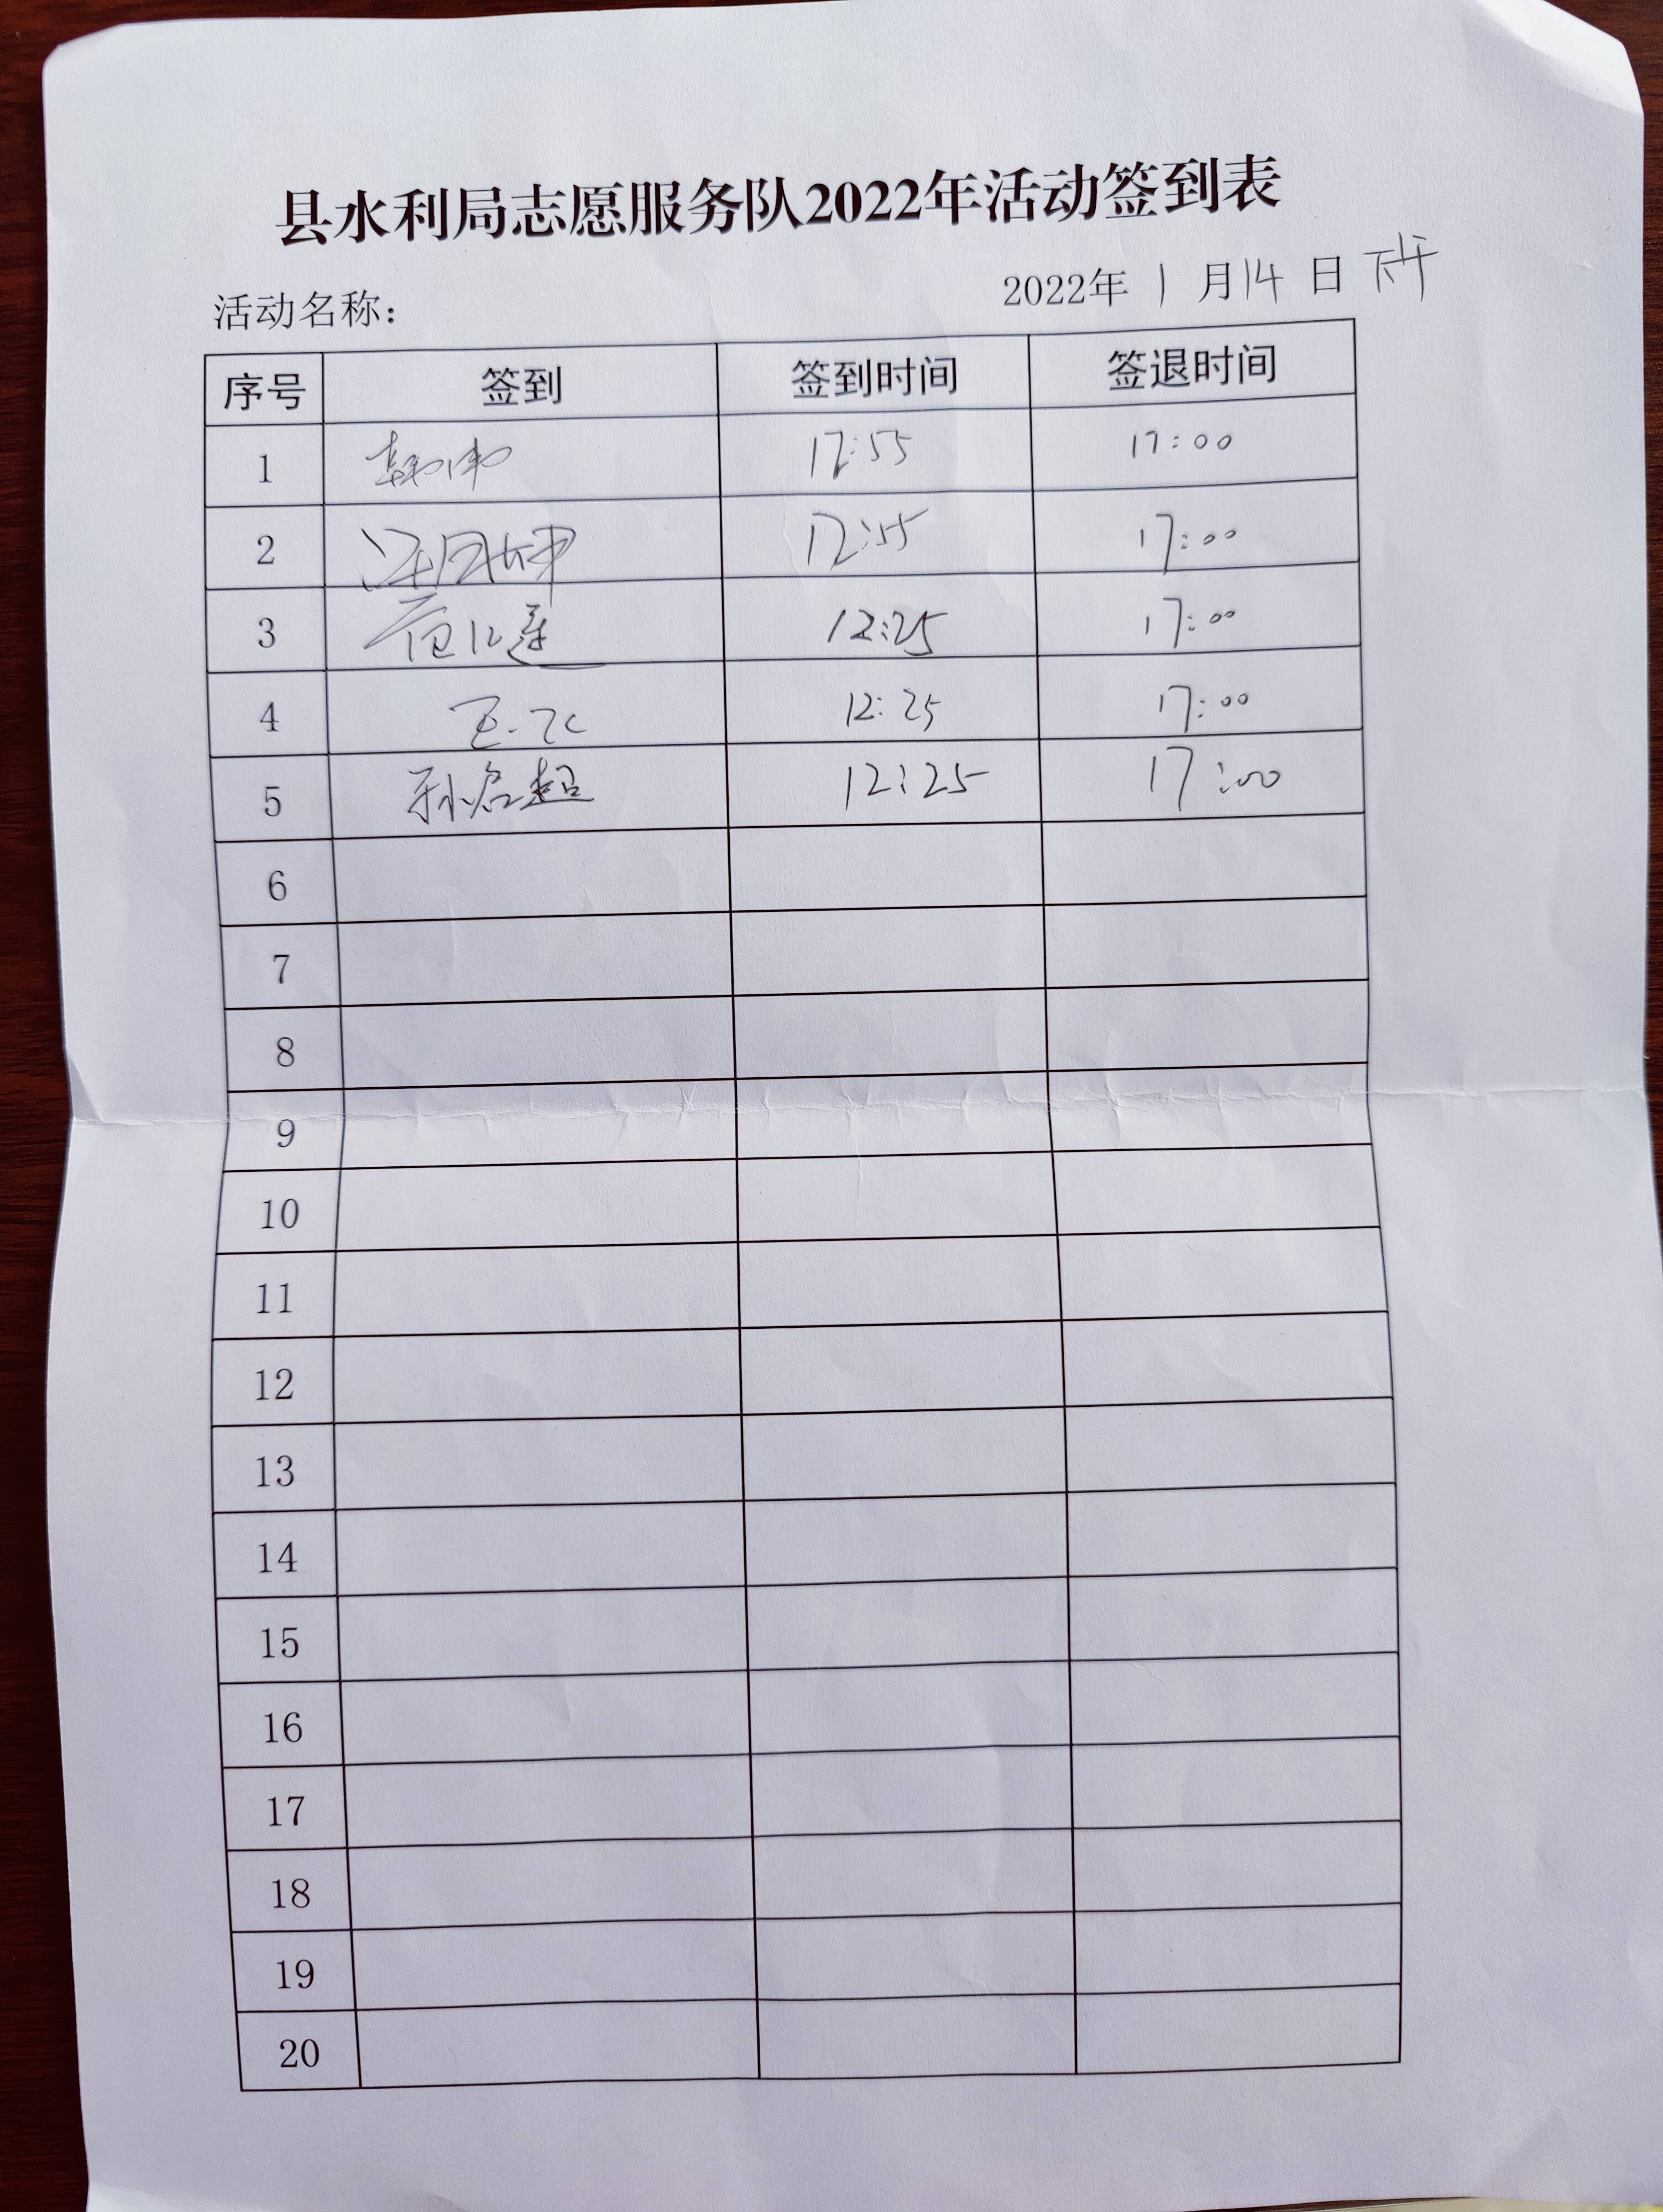 县水利局志愿服务队2022年活动签到表
活动名称： 2022年 1 月 14 日 下午
序号 签到 签到时间 签退时间
1 韩伟 12:55 17:00
2 12:55 17:00
3 12:25 17:00
4 12:25 17:00
5 12:25 17:00
6
7
8
9
10
11
12
13
14
15
16
17
18
19
20